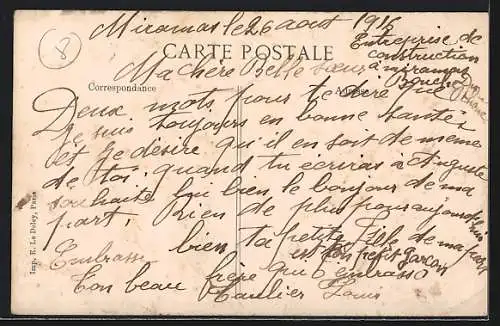 8
Miramas le 26 aout 1916
CARTE POSTALE
Entreprise de
construction
a miramas
Bouche
Rhone
Correspondance
Ma chère Belle sœur
Deux mots pour te dire que
je suis toujours en bonne santée
et je desire qu'il en soit de meme
de toi; quand tu écriras à Auguste
souhaite lui bien le bonjour de ma
part, Rien de plus pour aujourd'hui
Embrasse bien ta petite fille de ma part
et ton petit garçon
Ton beau frère qui t embrasse
Louis
Imp. E. Le Deley, Paris